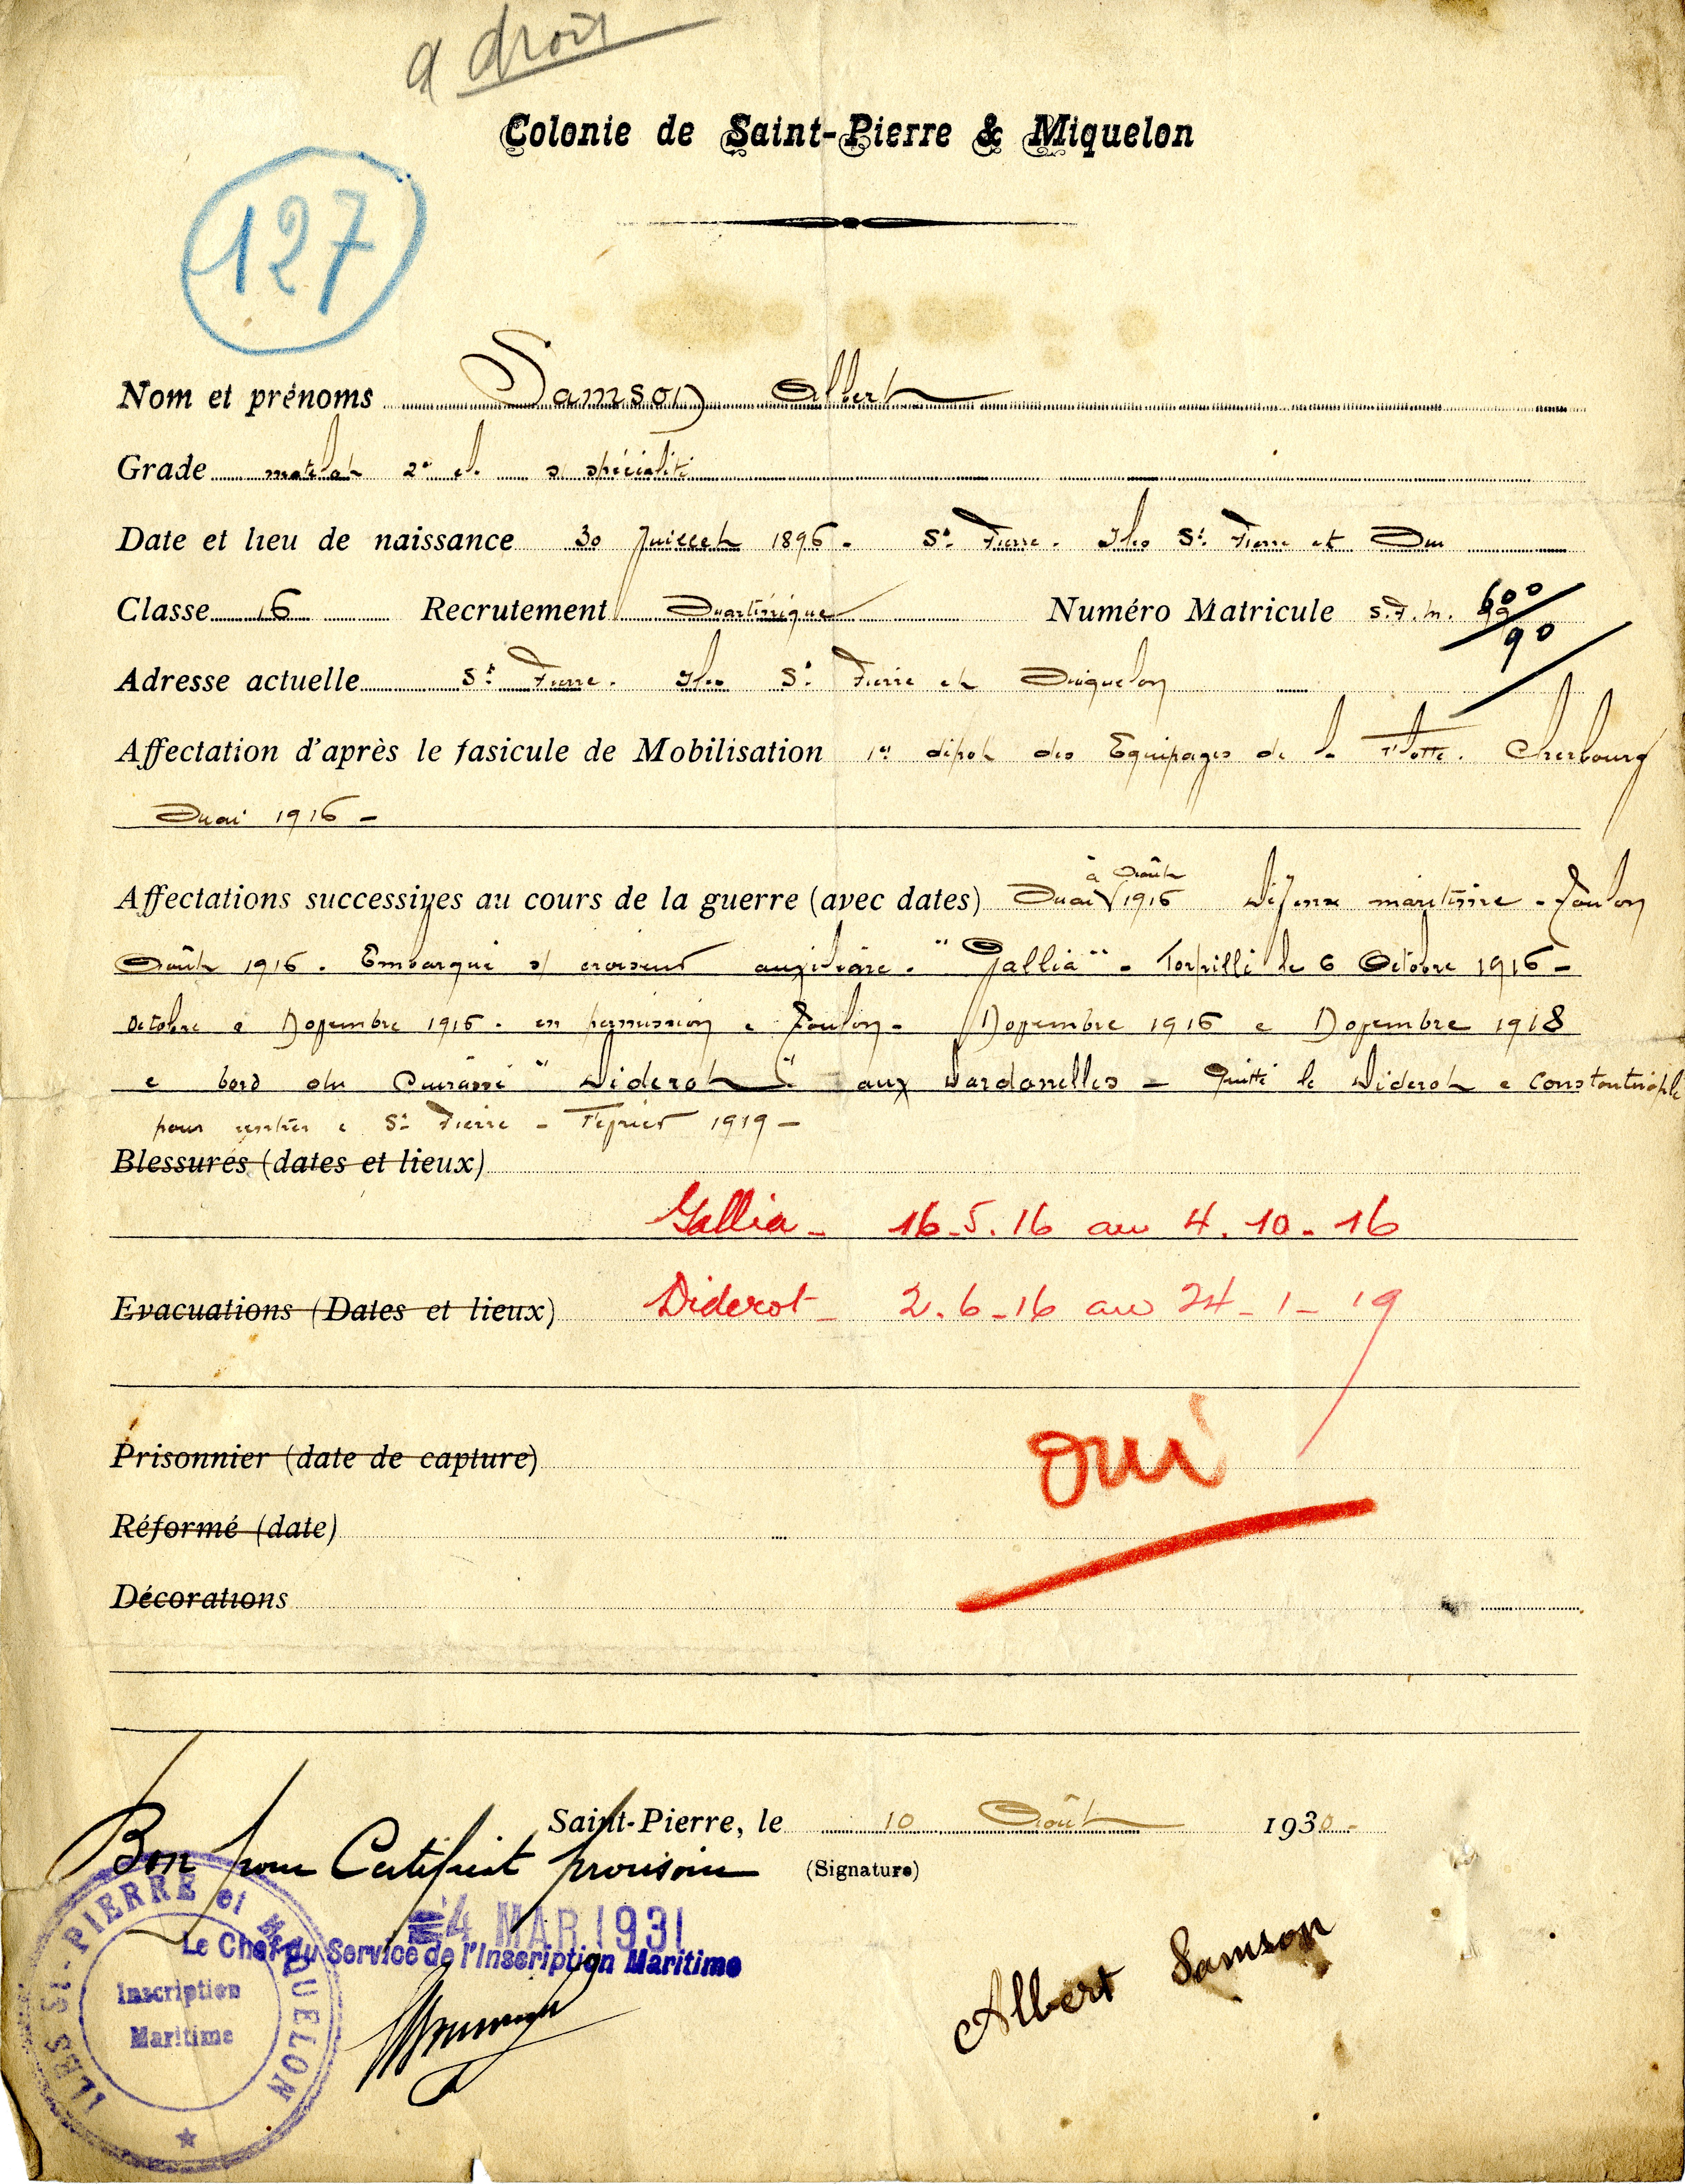 a droit
Colonie de Saint-Pierre & Miquelon
127
Nom et prénoms Samson Albert
Grade matelot 2e cl. s/ spécialité
Date et lieu de naissance 30 Juillet 1896. St. Pierre. Iles St. Pierre et Mon
Classe 16 Recrutement Martinique Numéro Matricule S.P.M. 600/90
Adresse actuelle St. Pierre. Iles St. Pierre et Miquelon
Affectation d'après le fasicule de Mobilisation 1er dépôt des Equipages de la Flotte. Cherbourg
Mai 1916 -
Affectations successives au cours de la guerre (avec dates) Mai à Août 1916 Défense maritime - Toulon
Août 1916. Embarqué s/ croiseur auxiliaire. "Gallia" - Torpillé le 6 Octobre 1916 -
Octobre à Novembre 1916. en permission à Toulon - Novembre 1916 à Novembre 1918
à bord du Cuirassé "Diderot" aux Dardanelles - Quitté le Diderot à Constantinople
pour rentrer à St. Pierre - Février 1919 -
Blessures (dates et lieux)
Gallia - 16.5.16 au 4.10.16
Evacuations (Dates et lieux) Diderot - 2.6.16 au 24-1-19
Prisonnier (date de capture)
oui
Réformé (date)
Décorations
Saint-Pierre, le 10 Août 1930.
Bon pour Certificat provisoire
(Signature)
4 MAR 1931
Le Chef du Service de l'Inscription Maritime
Albert Samson
ILES ST-PIERRE et MIQUELON
Inscription
Maritime